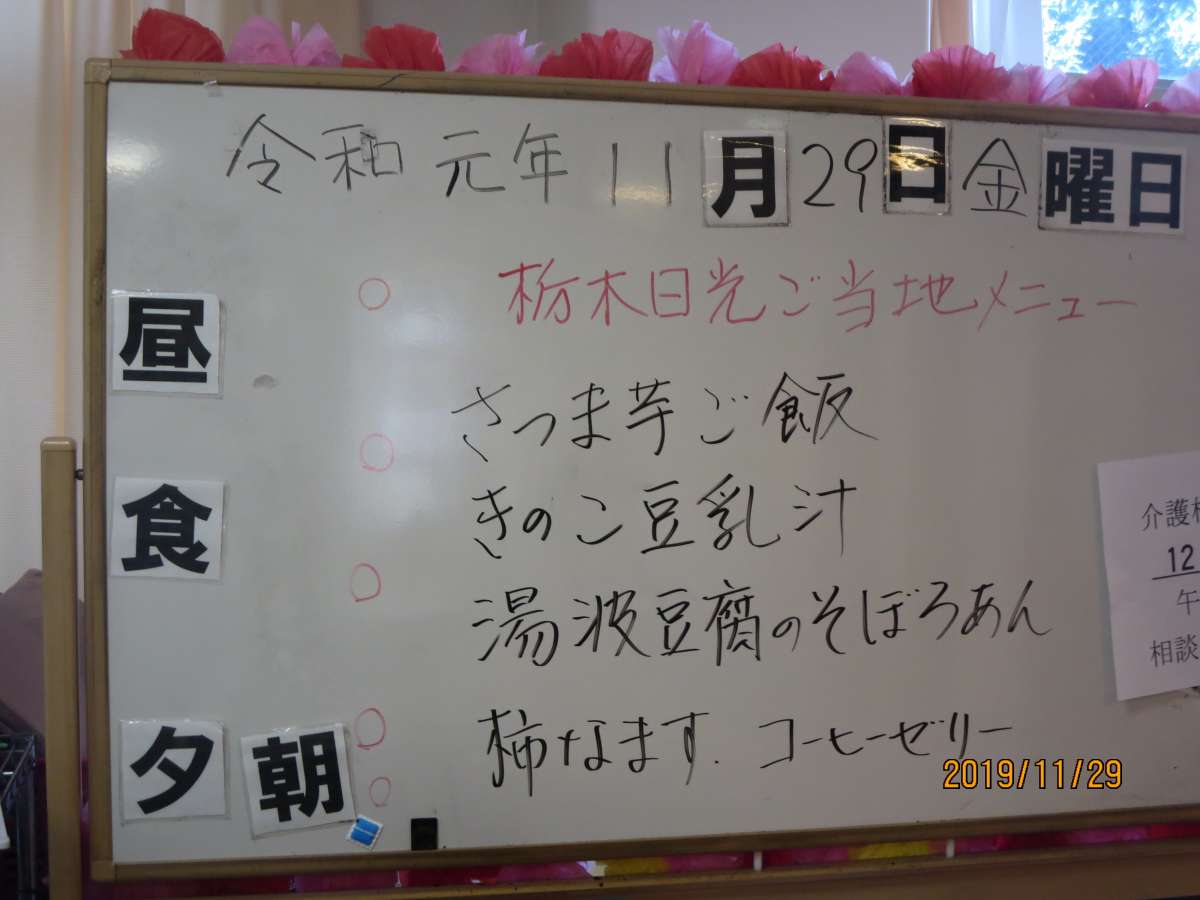 令和元年11月29日金曜日
栃木日光ご当地メニュー
昼食
さつま芋ご飯
きのこ豆乳汁
湯波豆腐のそぼろあん
柿なます.コーヒーゼリー
夕朝
介護相
12
午
相談
2019/11/29